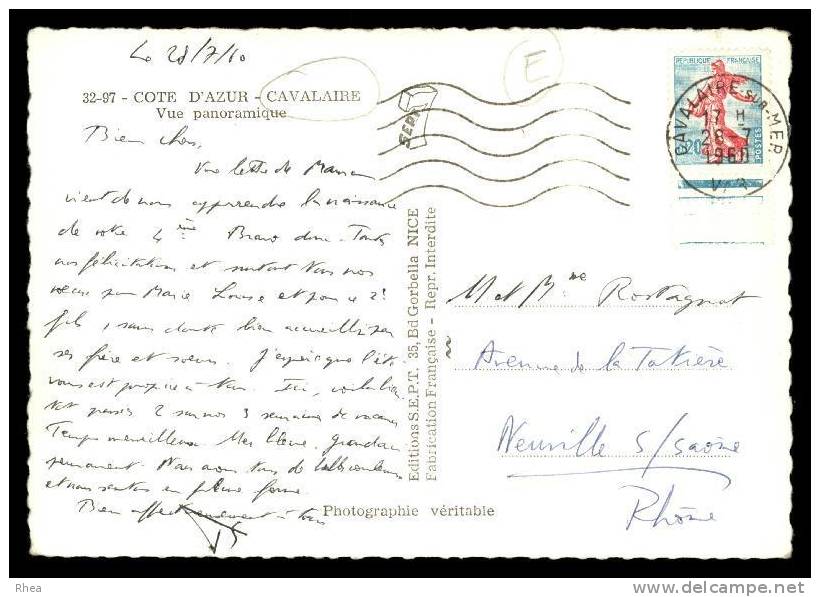 Le 28/7/60
32-97 - COTE D'AZUR - CAVALAIRE
Vue panoramique
Bien chers,
Une lettre de Maman
vient de nous apprendre la naissance
de votre 4ème Bravo donc. Toutes
nos félicitations et surtout tous nos
voeux pour Marie Louise et pour ce 2è
fils, sans doute bien accueilli par
ses frère et soeurs. J'espère que l'été
vous est propice à tous. Ici, voilà bien
passées 2 sur nos 3 semaines de vacances
Temps merveilleux Mer bleue,
permanent. Nous avons tous de belles couleurs
et nous sentons en pleine forme.
Bien affectueusement à tous
Photographie véritable
Editions S.E.P.T. 35, Bd Gorbella NICE
Fabrication Française - Repr. Interdite
SEPT
E
REPUBLIQUE FRANÇAISE
0,20
POSTES
CAVALAIRE-SUR-MER
17 H
28-7
1960
VAR
M et Mme Rostagnat
Avenue de la Tatière
Neuville s/saône
Rhône
Rhea
delcampe.net